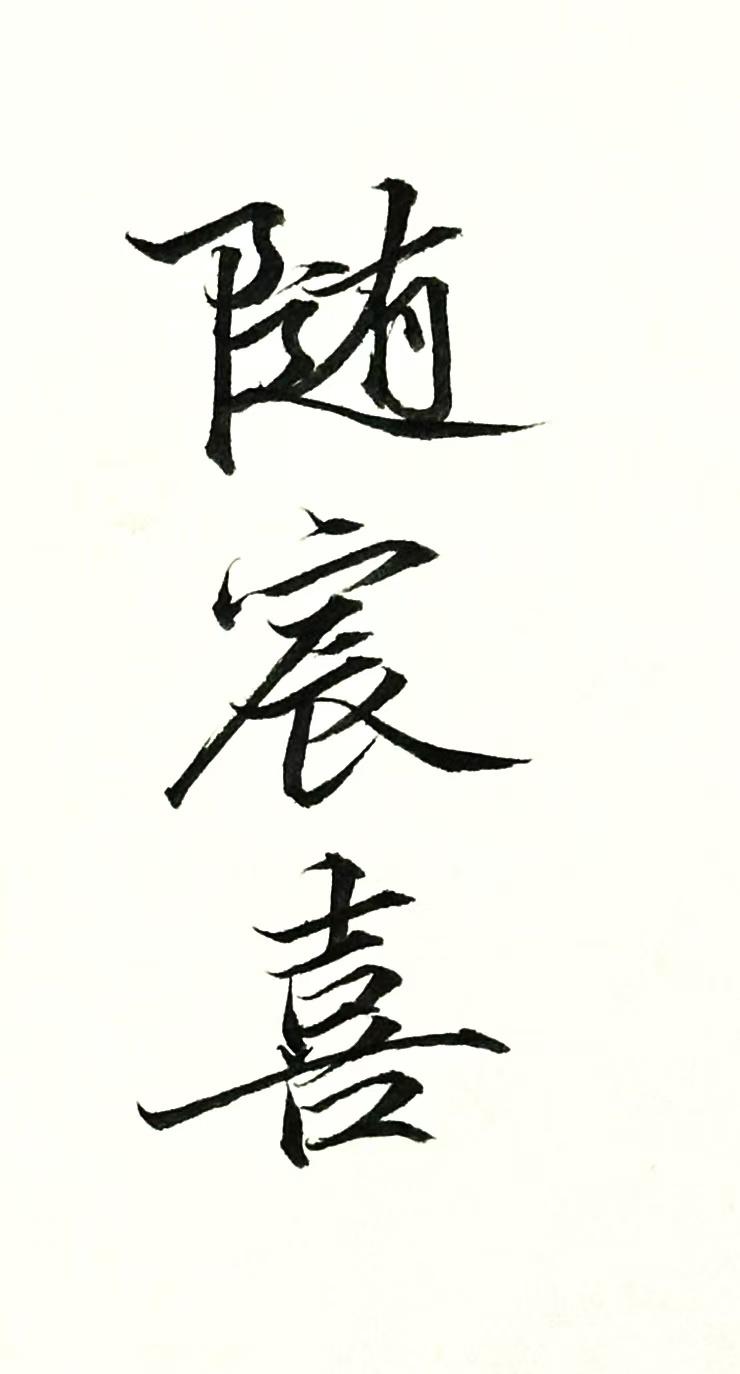 随宸喜